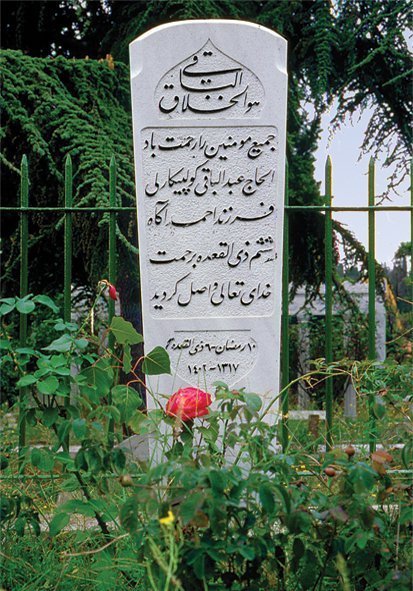 هو الخلاق الباقی
جمیع مومنین را رحمت باد
الحاج عبدالباقی گولپیکارلی
فرزند احمد آگاه
ششم ذی القعده برحمت
خدای تعالی واصل گردید
۱۰ رمضان - ٦ ذی القعده
۱۳۱۷ - ۱٤۰۲